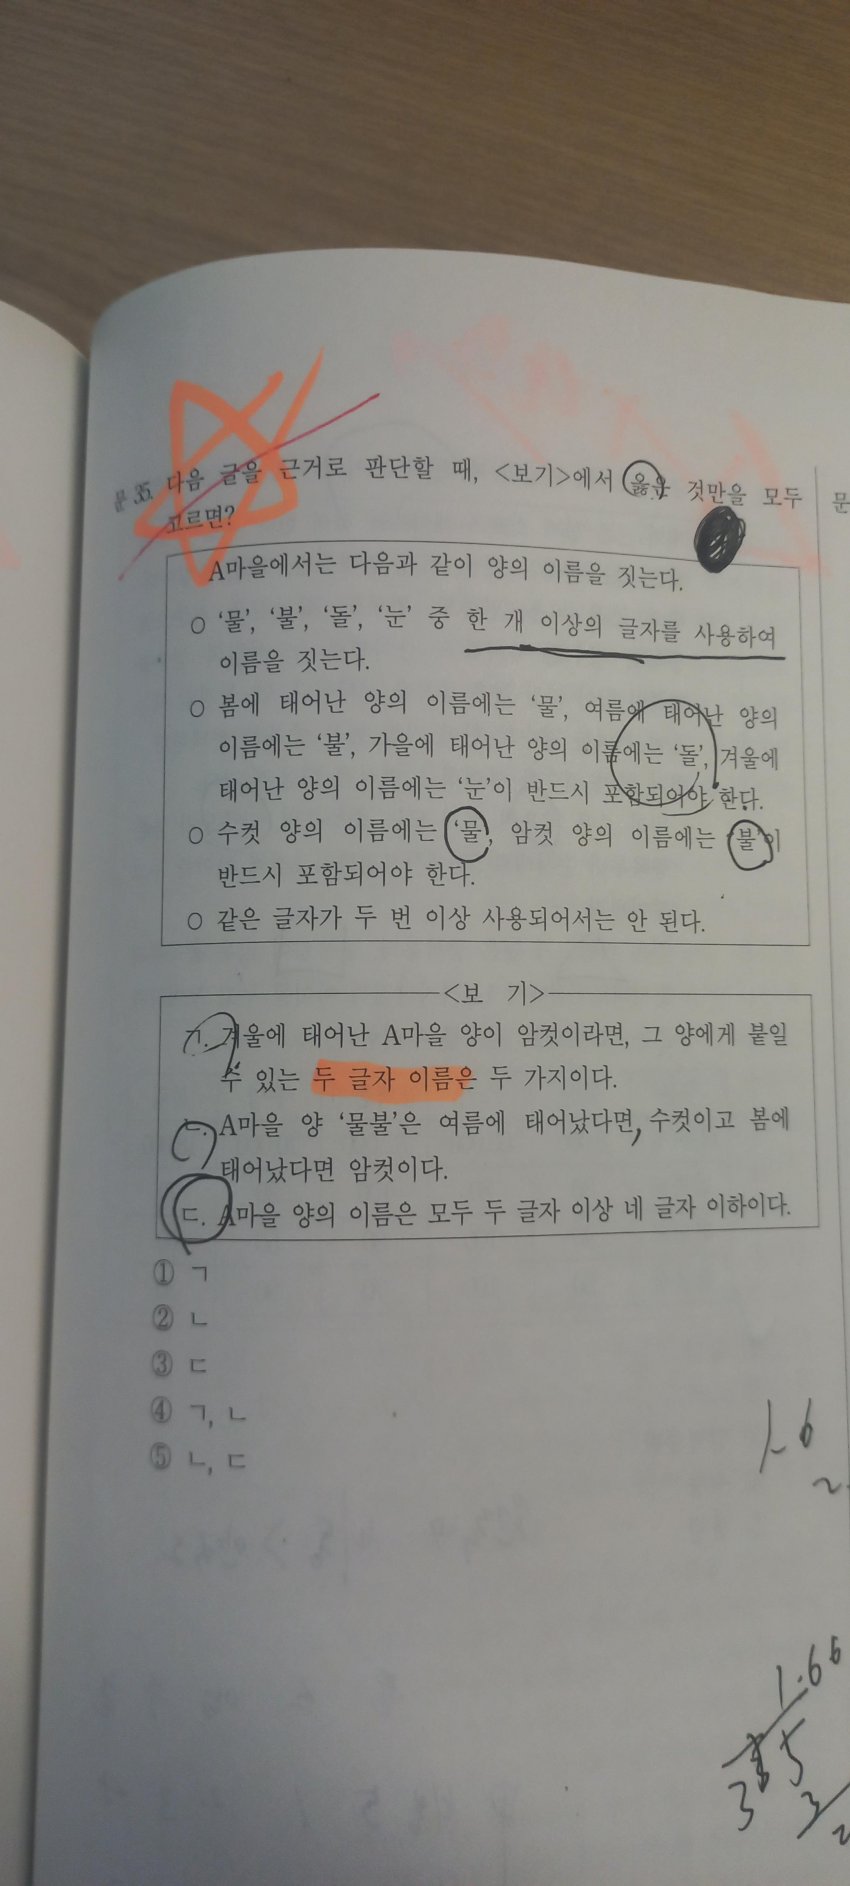 문 35. 다음 글을 근거로 판단할 때, <보기>에서 옳은 것만을 모두
고르면?
A마을에서는 다음과 같이 양의 이름을 짓는다.
○ ‘물’, ‘불’, ‘돌’, ‘눈’ 중 한 개 이상의 글자를 사용하여
이름을 짓는다.
○ 봄에 태어난 양의 이름에는 ‘물’, 여름에 태어난 양의
이름에는 ‘불’, 가을에 태어난 양의 이름에는 ‘돌’, 겨울에
태어난 양의 이름에는 ‘눈’이 반드시 포함되어야 한다.
○ 수컷 양의 이름에는 ‘물’, 암컷 양의 이름에는 ‘불’이
반드시 포함되어야 한다.
○ 같은 글자가 두 번 이상 사용되어서는 안 된다.
<보 기>
ㄱ. 겨울에 태어난 A마을 양이 암컷이라면, 그 양에게 붙일
수 있는 두 글자 이름은 두 가지이다.
ㄴ. A마을 양 ‘물불’은 여름에 태어났다면, 수컷이고 봄에
태어났다면 암컷이다.
ㄷ. A마을 양의 이름은 모두 두 글자 이상 네 글자 이하이다.
① ㄱ
② ㄴ
③ ㄷ
④ ㄱ, ㄴ
⑤ ㄴ, ㄷ
문
1.66